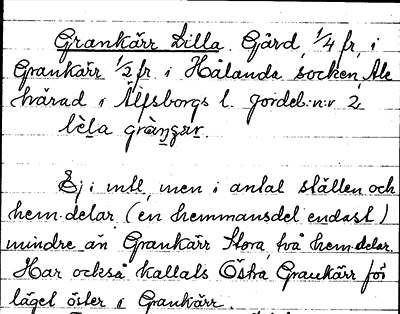 Grankärr Lilla. Gård, 1/4 fr, i
Grankärr 1/2 fr. i Hålanda socken, Ale
härad i Älfsborgs l. jordeb. n:r 2.
lèla gràŋsær.
Ej i mtl, men i antal ställen och
hem.delar (en hemmansdel endast)
mindre än Grankärr Stora, två hem.delar.
Har också kallats Östra Grankärr för
läget öster i Grankärr.